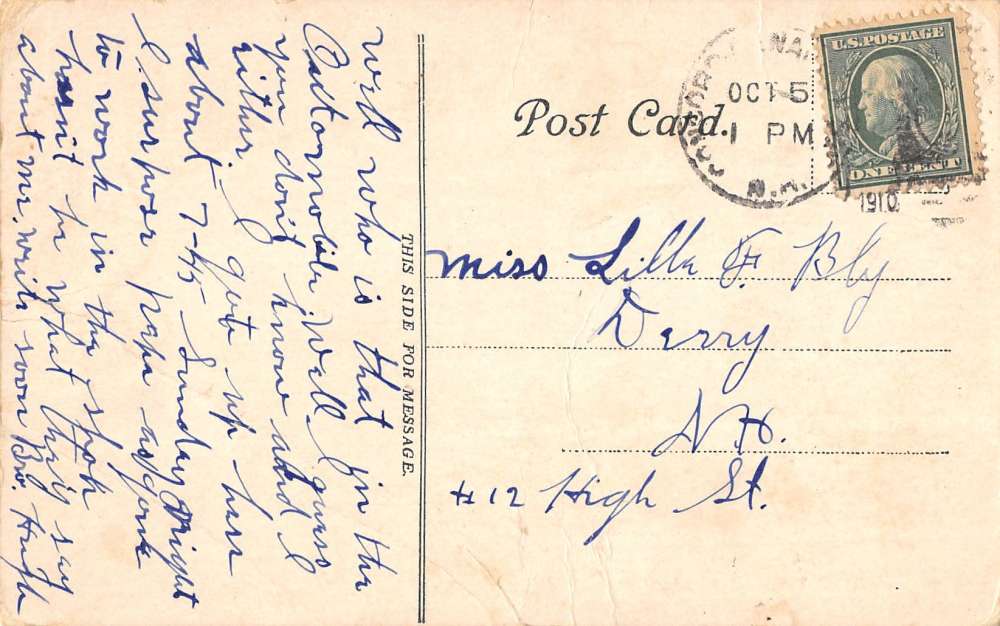 Post Card.
THIS SIDE FOR MESSAGE.
U.S. POSTAGE
ONE CENT
OCT 5
1 PM
N.H.
1910
Miss Lilla F. Bly
Derry
N.H.
#12 High St.
will who is that in the
Automobile. Well guess
you don't know and I
either. I got up here
about 7-45 Sunday Night
I surpose papa as gone
to work in the shop
hasn't he what they say
about me. write soon Bro. Hugh